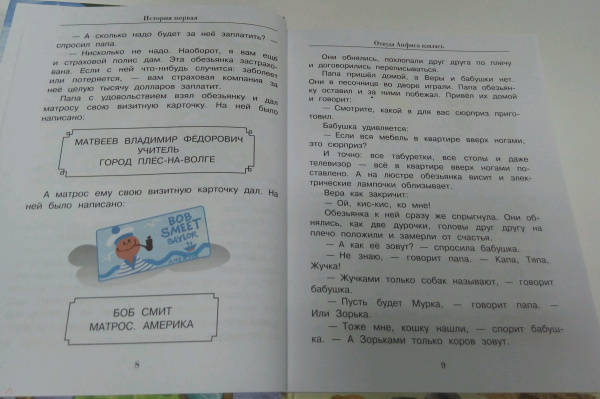 История первая
— А сколько надо будет за неё заплатить? —
спросил папа.
— Нисколько не надо. Наоборот, я вам ещё
и страховой полис дам. Эта обезьянка застрахо-
вана. Если с ней что-нибудь случится: заболеет
или потеряется, — вам страховая компания за
неё целую тысячу долларов заплатит.
Папа с удовольствием взял обезьянку и дал
матросу свою визитную карточку. На ней было
написано:
МАТВЕЕВ ВЛАДИМИР ФЁДОРОВИЧ
УЧИТЕЛЬ
ГОРОД ПЛЁС-НА-ВОЛГЕ
А матрос ему свою визитную карточку дал. На
ней было написано:
BOB
SMEET
SAYLOR
БОБ СМИТ
МАТРОС. АМЕРИКА
8
Откуда Анфиса взялась
Они обнялись, похлопали друг друга по плечу
и договорились переписываться.
Папа пришёл домой, а Веры и бабушки нет.
Они в песочнице во дворе играли. Папа обезьян-
ку оставил и за ними побежал. Привёл их домой
и говорит:
— Смотрите, какой я для вас сюрприз приго-
товил.
Бабушка удивляется:
— Если вся мебель в квартире вверх ногами,
это сюрприз?
И точно: все табуретки, все столы и даже
телевизор — всё в квартире вверх ногами по-
ставлено. А на люстре обезьянка висит и элек-
трические лампочки облизывает.
Вера как закричит:
— Ой, кис-кис, ко мне!
Обезьянка к ней сразу же спрыгнула. Они об-
нялись, как две дурочки, головы друг другу на
плечо положили и замерли от счастья.
— А как её зовут? — спросила бабушка.
— Не знаю, — говорит папа. — Капа, Тяпа,
Жучка!
— Жучками только собак называют, — говорит
бабушка.
— Пусть будет Мурка, — говорит папа. —
Или Зорька.
— Тоже мне, кошку нашли, — спорит бабуш-
ка. — А Зорьками только коров зовут.
9